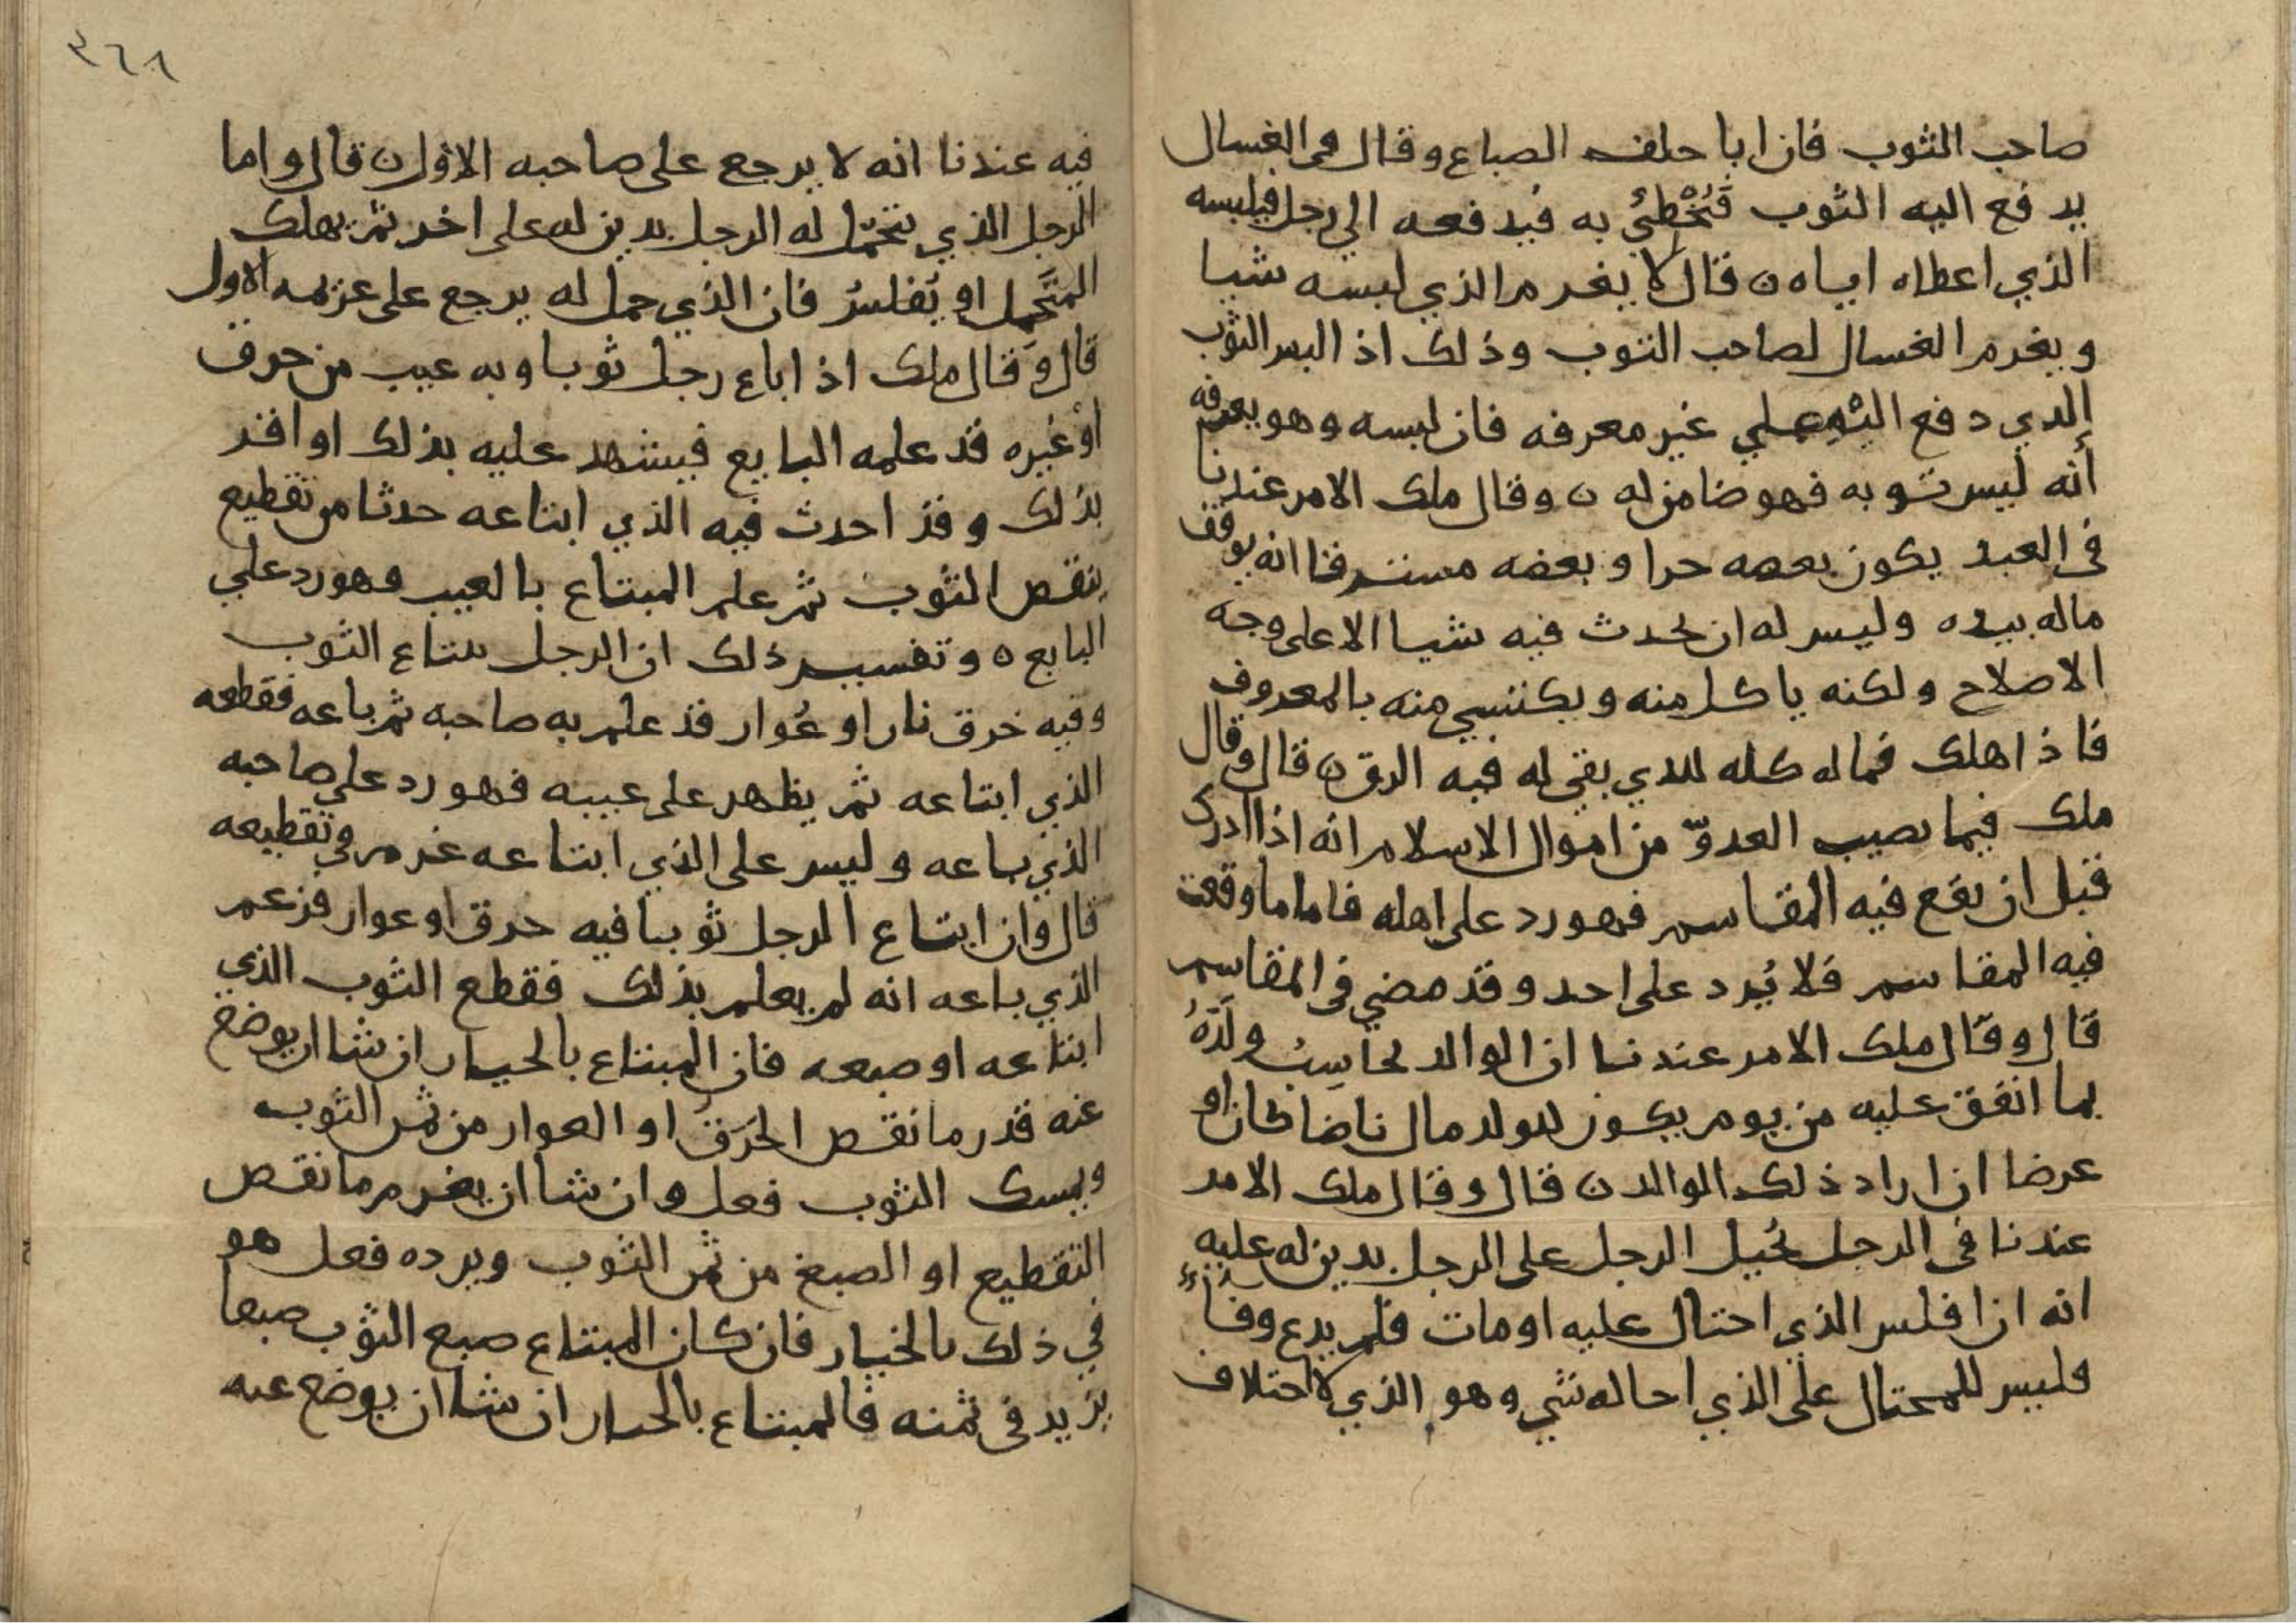 صاحب الثوب فان ابا حلف الصباع وقال في الغسال
يدفع اليه الثوب فَتُخْطِئُ به فيدفعه الى رجل فيلبسه
الذي اعطاه اياه ن قال لا يغرم الذي لبسه شيا
ويغرم الغسال لصاحب الثوب وذلك اذا لبس الثوب
الذي دفع اليه على غير معرفه فان لبسه وهو يعرفه
أنه ليس ثوبه فهو ضامن له ن وقال ملك الامر عندنا
في العبد يكون بعضه حرا وبعضه مسترقا انه يوقف
ماله بيده وليس له ان يحدث فيه شيا الا على وجه
الاصلاح ولكنه ياكل منه ويكتسي منه بالمعروف
فاذا هلك فماله كله للذي بقي له فيه الرق ن قال وقال
ملك فيما يصيب العدوّ من اموال الاسلام انه اذا ادرك
قبل ان يقع فيه المقاسم فهو رد على اهله فاما ما وقعت
فيه المقاسم فلا يُرد على احد وقد مضي في المقاسم
قال وقال ملك الامر عندنا ان الوالد يحاسِبُ ولَدَهُ
بما انفق عليه من يوم يكون للولد مال ناضا كان او
عرضا ان اراد ذلك الوالد ن قال وقال ملك الامر
عندنا في الرجل يُحيل الرجل على الرجل بدين له عليه
انه ان افلس الذي احتال عليه او مات فلم يدع وفاءً
فليس للمحتال على الذي احاله شي وهو الذي لا اختلاف
٣٦٨
فيه عندنا انه لا يرجع على صاحبه الاول ن قال واما
الرجل الذي يتحمّل له الرجل بدين له على اخر ثم يهلك
المتَحَمِل او يُفلسُ فان الذي حمل له يرجع على غريمه الاول
قال وَقال ملك اذا باع رجل ثوبا وبه عيب من حرق
اوْ غيره قد علمه البايع فيشهد عليه بذلك او اقر
بذلك وقد احدث فيه الذي ابتاعه حدثا من تقطيع
ينقص الثوب ثم علم المبتاع بالعيب فهو رد على
البايع ٥ وتفسير ذلك ان الرجل يبتاع الثوب
وفيه خرق نار او عُوار قد علم به صاحبه ثم باعه فقطعه
الذي ابتاعه ثم يظهر على عيبه فهو رد على صاحبه
الذي باعه وليس على الذي ابتاعه غرم في تقطيعه
قال وان ابتاع الرجل ثوبا فيه حرق او عوار فزعم
الذي باعه انه لم يعلم بذلك فقطع الثوب الذي
ابتاعه او صبعه فان المبتاع بالخيار ان شا ان يوضع
عنه قدر ما نقص الحَرَقُ او العوار من ثمن الثوب
ويمسك الثوب فعل وان شا ان يغرم ما نقص
التقطيع او الصبغ من ثمن الثوب ويرده فعل هو
في ذلك بالخيار فان كان المبتاع صبع الثوب صبعا
يزيد في ثمنه فالمبتاع بالخيار ان شا ان يوضع عنه